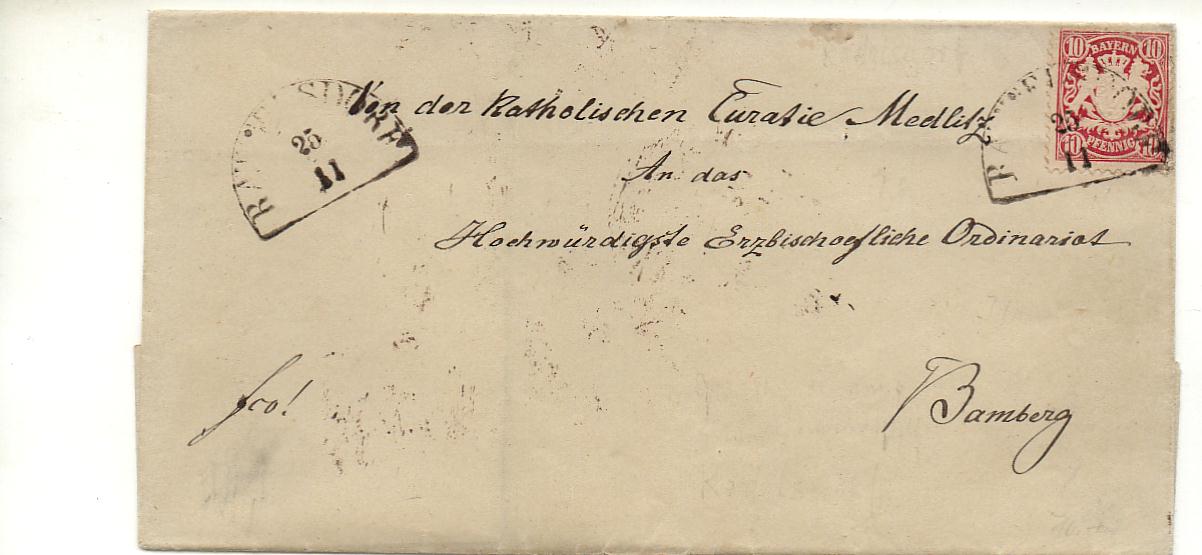 10 BAYERN 10
10 PFENNIG 10
RATTELSDORF
25
11
RATTELSDORF
25
11
Von der Katholischen Curatie Medlitz
An das
Hochwürdigste Erzbischoefliche Ordinariat
fco!
Bamberg